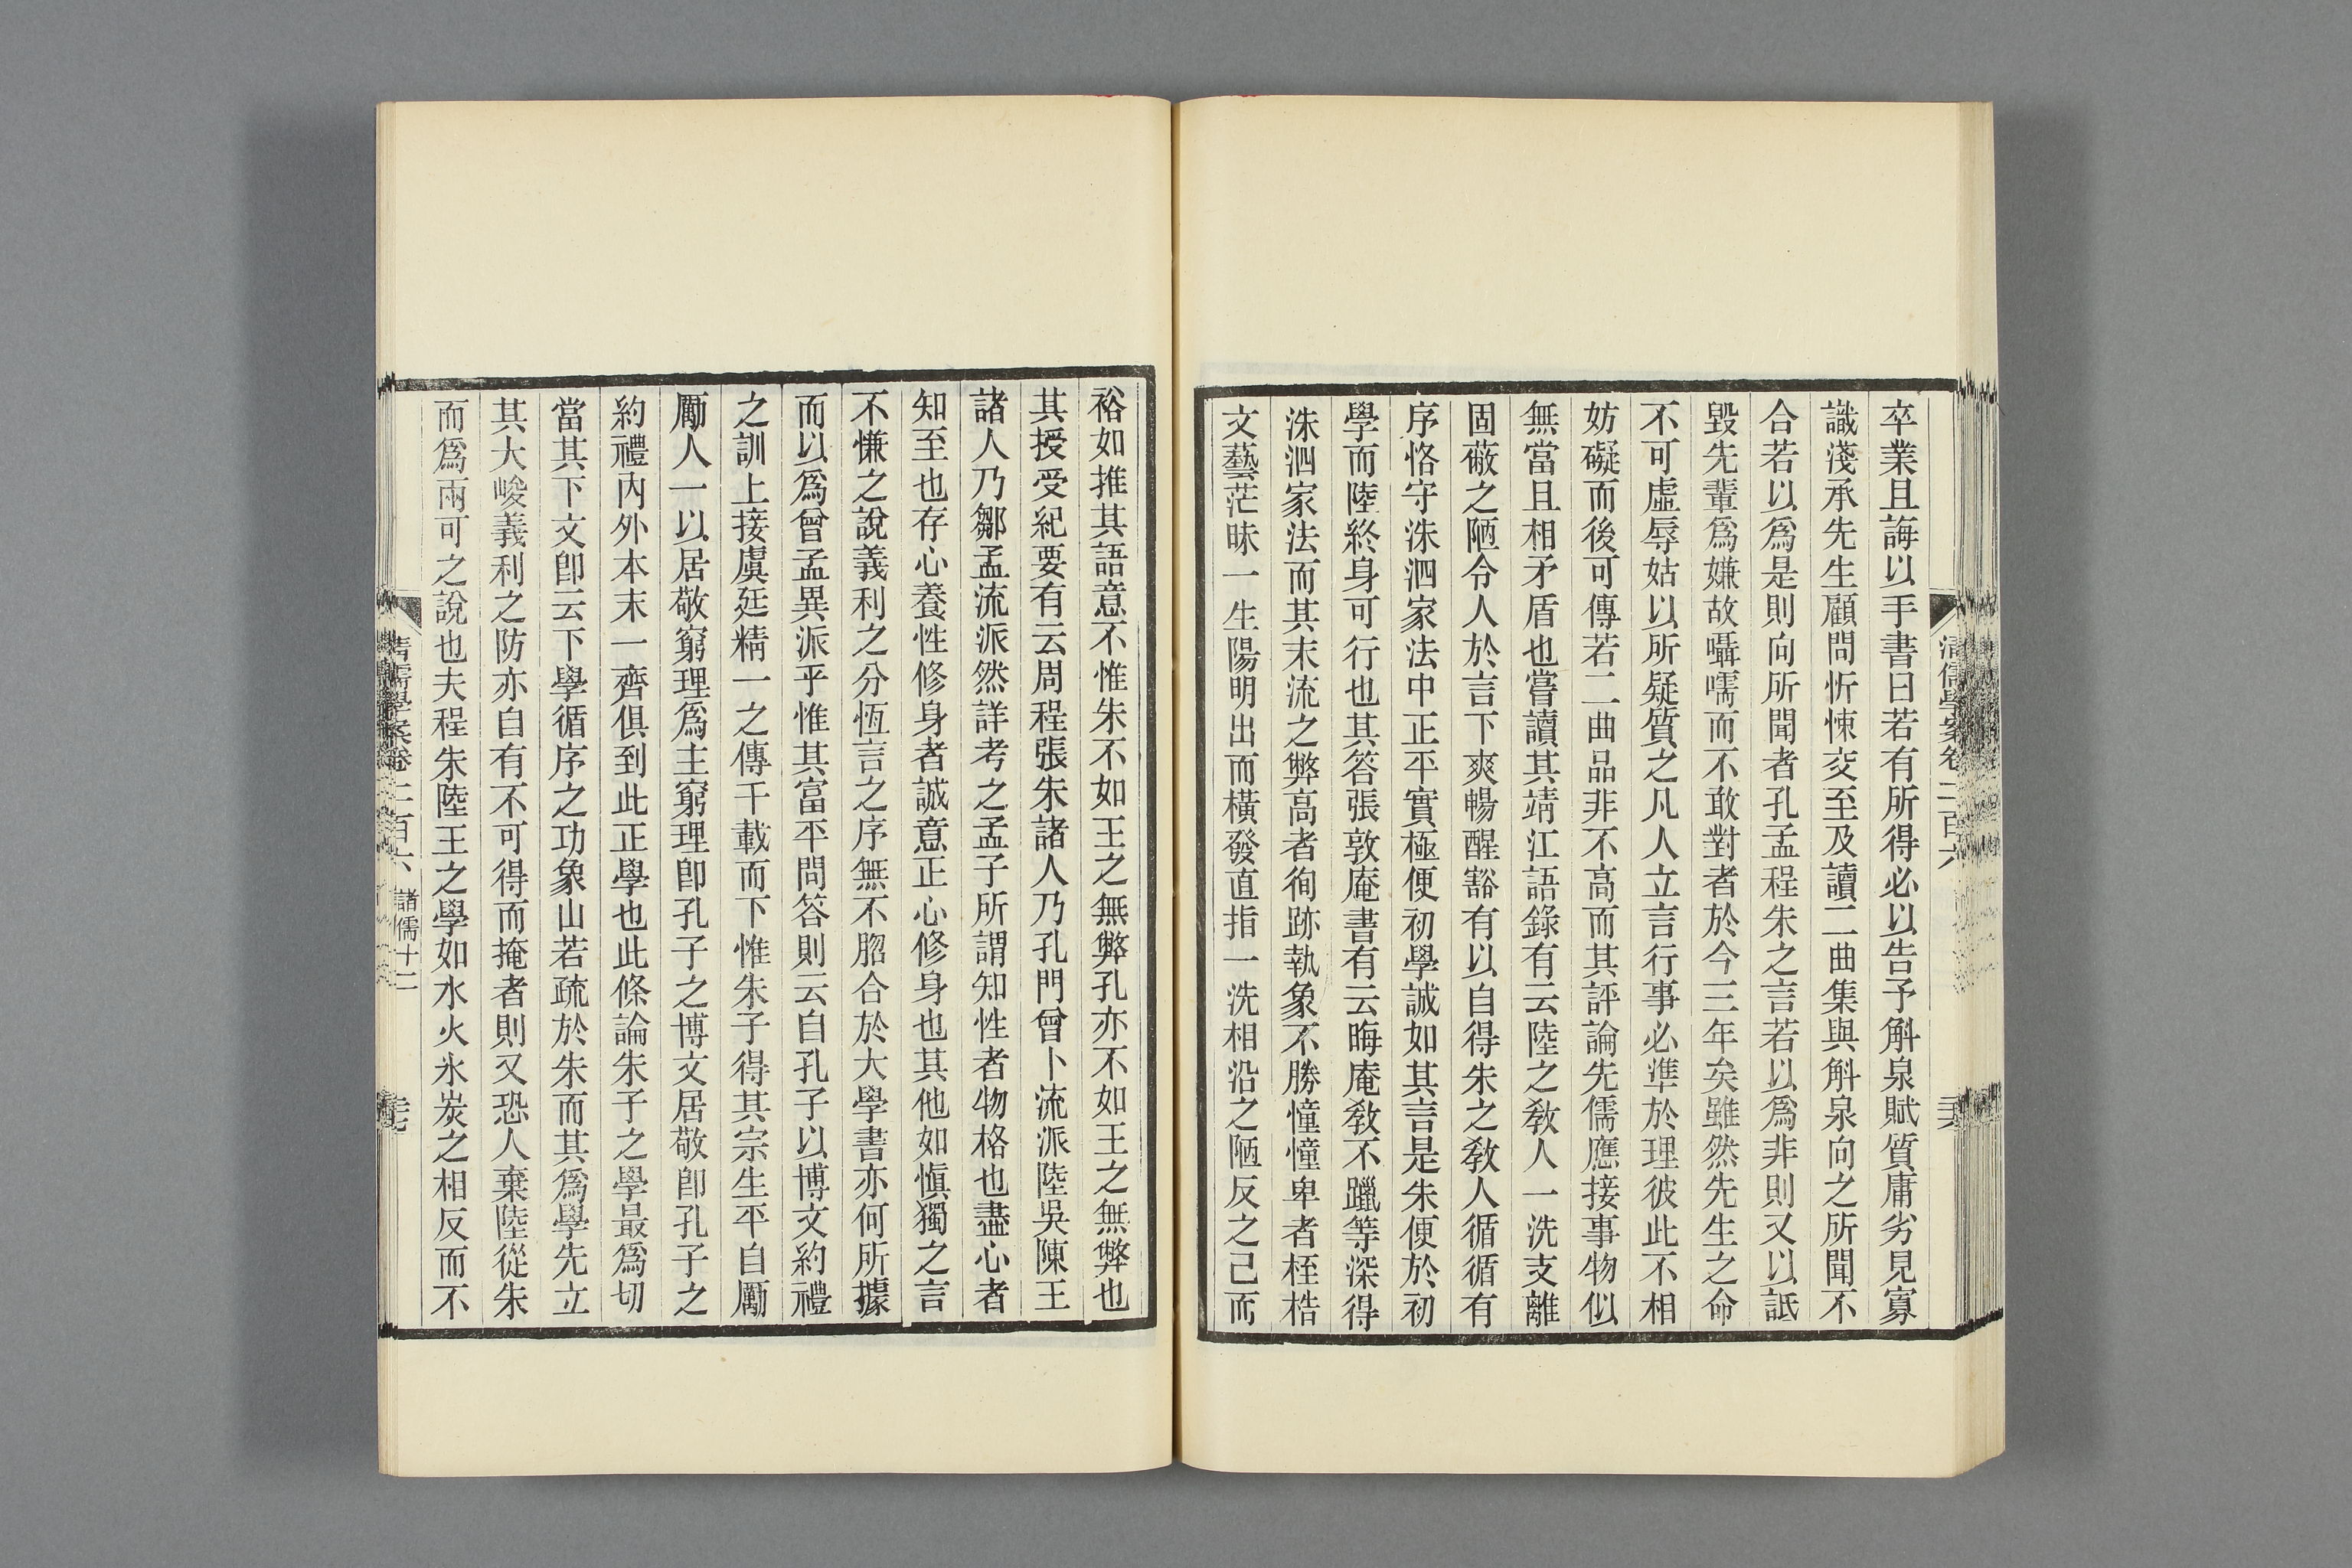 卒業且誨以手書曰若有所得必以告予斛泉賦質庸劣見寡
識淺承先生顧問忻悚交至及讀二曲集與斛泉向之所聞不
合若以爲是則向所聞者孔孟程朱之言若以爲非則又以詆
毀先輩爲嫌故囁嚅而不敢對者於今三年矣雖然先生之命
不可虛辱姑以所疑質之凡人立言行事必準於理彼此不相
妨礙而後可傳若二曲品非不高而其評論先儒應接事物似
無當且相矛盾也嘗讀其靖江語錄有云陸之敎人一洗支離
固蔽之陋令人於言下爽暢醒豁有以自得朱之敎人循循有
序恪守洙泗家法中正平實極便初學誠如其言是朱便於初
學而陸終身可行也其答張敦庵書有云晦庵敎不躐等深得
洙泗家法而其末流之弊高者徇跡執象不勝憧憧卑者桎梏
文藝茫昧一生陽明出而橫發直指一洗相沿之陋反之己而
裕如推其語意不惟朱不如王之無弊孔亦不如王之無弊也
其授受紀要有云周程張朱諸人乃孔門曾卜流派陸吳陳王
諸人乃鄒孟流派然詳考之孟子所謂知性者物格也盡心者
知至也存心養性修身者誠意正心修身也其他如愼獨之言
不慊之說義利之分恆言之序無不脗合於大學書亦何所據
而以爲曾孟異派乎惟其富平問答則云自孔子以博文約禮
之訓上接虞廷精一之傳千載而下惟朱子得其宗生平自勵
勵人一以居敬窮理爲主窮理卽孔子之博文居敬卽孔子之
約禮內外本末一齊俱到此正學也此條論朱子之學最爲切
當其下文卽云下學循序之功象山若疏於朱而其爲學先立
其大峻義利之防亦自有不可得而掩者則又恐人棄陸從朱
而爲兩可之說也夫程朱陸王之學如水火氷炭之相反而不
清儒學案卷二百六 諸儒十二